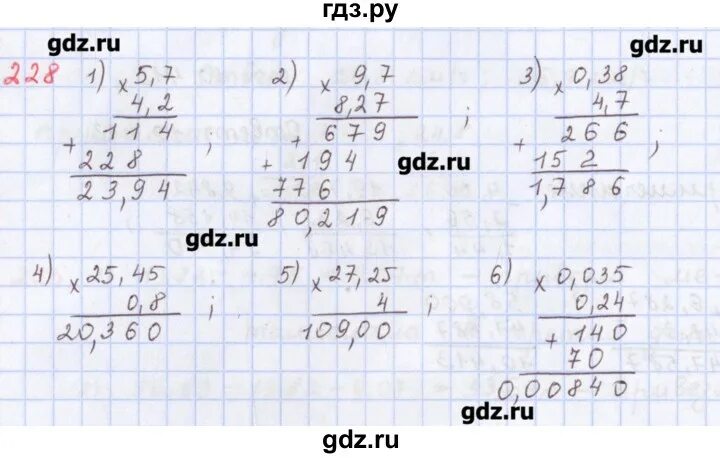 гдз.ру
gdz.ru
gdz.ru
228 1) × 5,7
4,2
+ 114
228
23,94 ;
2) × 9,7
8,27
+ 679
+ 194
776
80,219 ;
3) × 0,38
4,7
+ 266
152
1,786 ;
gdz.ru
gdz.ru
4) × 25,45
0,8
20,360 ;
5) × 27,25
4
109,00 ;
6) × 0,035
0,24
+ 140
70
0,00840
gdz.ru
gdz.ru